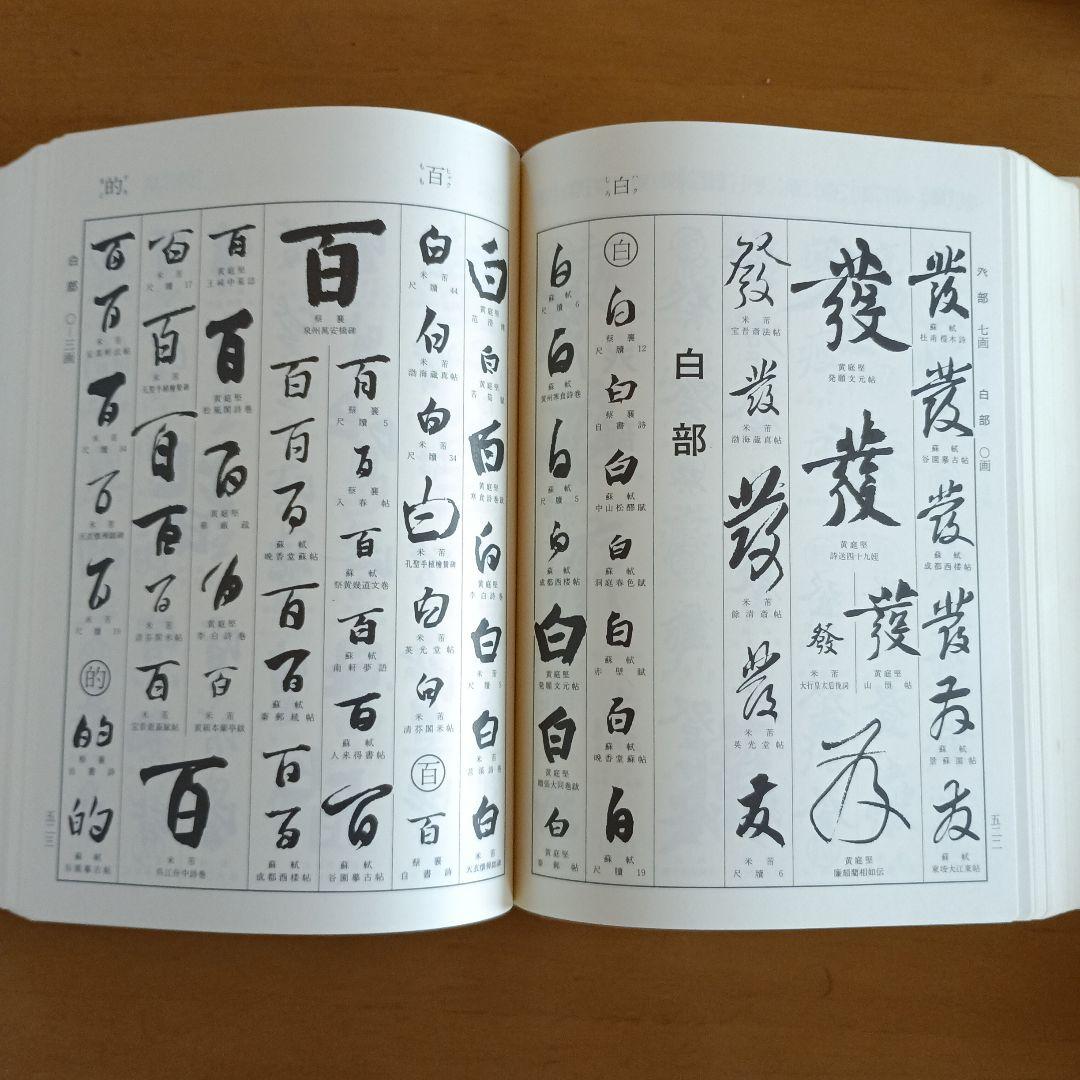 白
しろ
ハク
癶部 七画 白部 〇画
五二二
發
蘇軾
杜甫榿木詩
發
蘇軾
谷園摹古帖
發
蘇軾
成都西楼帖
發
發
蘇軾
景蘇園帖
發
蘇軾
東坡大江東帖
發
黄庭堅
発願文元帖
發
黄庭堅
詩送四十九姪
發
黄庭堅
山預帖
發
米芾
大行皇太后挽詞
發
黄庭堅
廉頗藺相如伝
發
米芾
發
米芾
渤海蔵真帖
發
米芾
餘清斎帖
發
米芾
英光堂帖
發
米芾
尺牘 6
白部
白
白
蔡襄
尺牘 12
白
蔡襄
自書詩
白
蘇軾
中山松醪賦
白
蘇軾
洞庭春色賦
白
蘇軾
赤壁賦
白
蘇軾
晩香堂蘇帖
白
米芾
尺牘 19
白
蘇軾
尺牘 6
白
蘇軾
黄州寒食詩巻
白
蘇軾
尺牘 5
白
蘇軾
成都西楼帖
白
黄庭堅
発願文元帖
白
黄庭堅
白
黄庭堅
百
もも
ヒャク
的
白部 〇—三画
五二三
白
黄庭堅
白
黄庭堅
白
黄庭堅
寒食詩巻跋
白
黄庭堅
李白詩巻
白
米芾
尺牘 5
白
米芾
苕溪詩巻
白
米芾
白
米芾
尺牘 44
白
米芾
渤海蔵真帖
白
米芾
尺牘 34
白
米芾
孔聖手植檜賛碑
白
米芾
英光堂帖
白
米芾
清芬閣米帖
百
百
蔡襄
自書詩
百
蔡襄
泉州萬安橋碑
百
蔡襄
尺牘 5
百
蔡襄
入春帖
百
蘇軾
祭黄幾道文巻
百
蘇軾
南軒夢語
百
蘇軾
人来得書帖
百
蘇軾
谷園摹古帖
百
百
百
蘇軾
晩香堂蘇帖
百
百
蘇軾
百
百
蘇軾
成都西楼帖
百
黄庭堅
王純中墓誌
百
黄庭堅
松風閣詩巻
百
黄庭堅
百
黄庭堅
李白詩巻
百
米芾
百
米芾
尺牘 17
百
米芾
孔聖手植檜賛碑
百
百
百
米芾
清芬閣米帖
百
米芾
百
米芾
呉江舟中詩巻
百
百
米芾
百
米芾
尺牘 34
百
米芾
百
米芾
尺牘 19
的
的
蔡襄
自書詩
的
蘇軾
谷園摹古帖